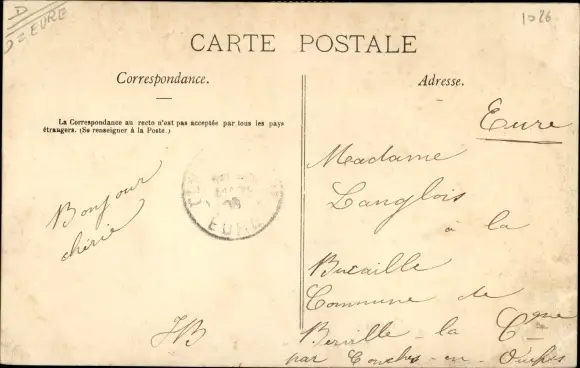 D
27 EURE
1026
CARTE POSTALE
Correspondance.
Adresse.
La Correspondance au recto n'est pas acceptée par tous les pays
étrangers. (Se renseigner à la Poste.)
Bonjour
chérie
JB
EURE
Eure
Madame
Langlois
à la
Bucaille
Commune de
Berville-la-Cgne
par Conches-en-Ouche